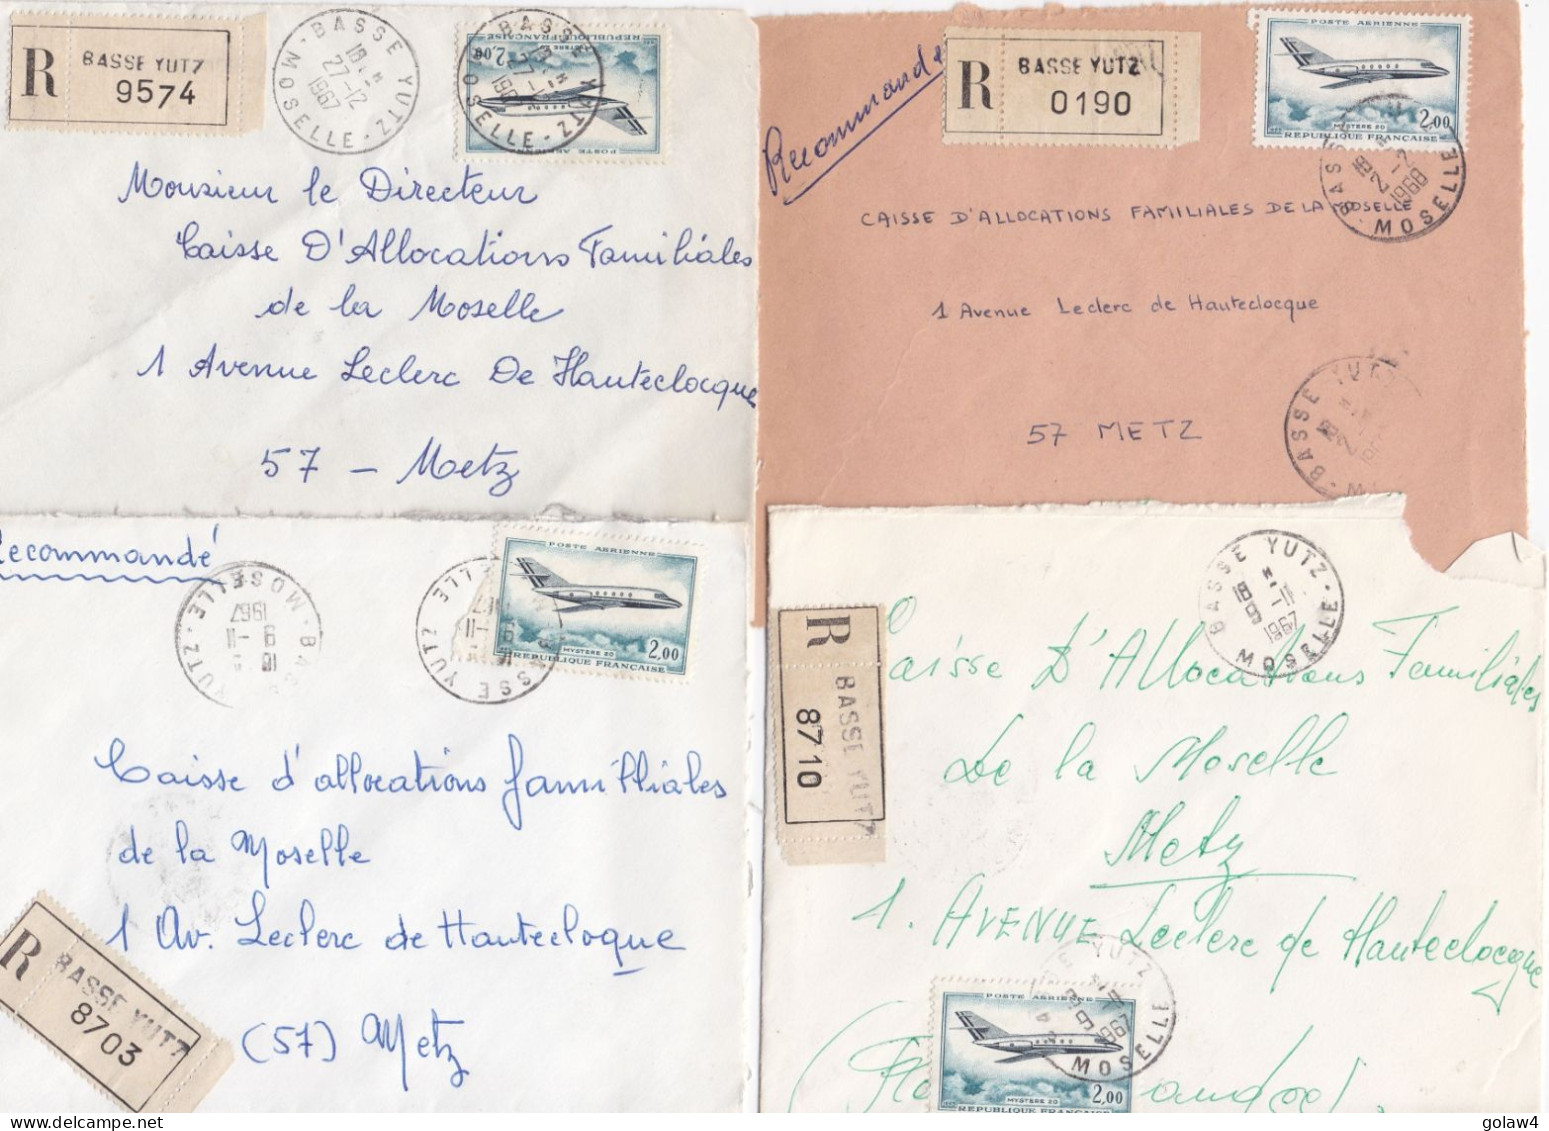 R BASSE YUTZ
9574
BASSE YUTZ
18 H
27-12
1967
MOSELLE
POSTE AÉRIENNE
MYSTERE 20
2,00
REPUBLIQUE FRANÇAISE
Monsieur le Directeur
Caisse D'Allocations Familiales
de la Moselle
1 Avenue Leclerc De Hauteclocque
57 - Metz
Recommandé
R BASSE YUTZ
0190
POSTE AERIENNE
MYSTERE 20
2,00
REPUBLIQUE FRANÇAISE
BASSE
18 H
2-2
1968
MOSELLE
CAISSE D'ALLOCATIONS FAMILIALES DE LA MOSELLE
1 Avenue Leclerc de Hauteclocque
57 METZ
BASSE YUTZ
Recommandé
BASSE YUTZ
18
9-11
1967
MOSELLE
POSTE AERIENNE
MYSTERE 20
2,00
REPUBLIQUE FRANÇAISE
Caisse d'allocations familliales
de la Moselle
1 Av. Leclerc de Hautecloque
(57) Metz
R BASSE YUTZ
8703
BASSE YUTZ
18 H
9-11
1967
MOSELLE
R BASSE YUTZ
8710
Caisse D'Allocations Familiales
De la Moselle
Metz
1. AVENUE Leclerc de Hauteclocque
YUTZ
9-11
1967
MOSELLE
POSTE AERIENNE
MYSTERE 20
2,00
REPUBLIQUE FRANÇAISE
golaw4